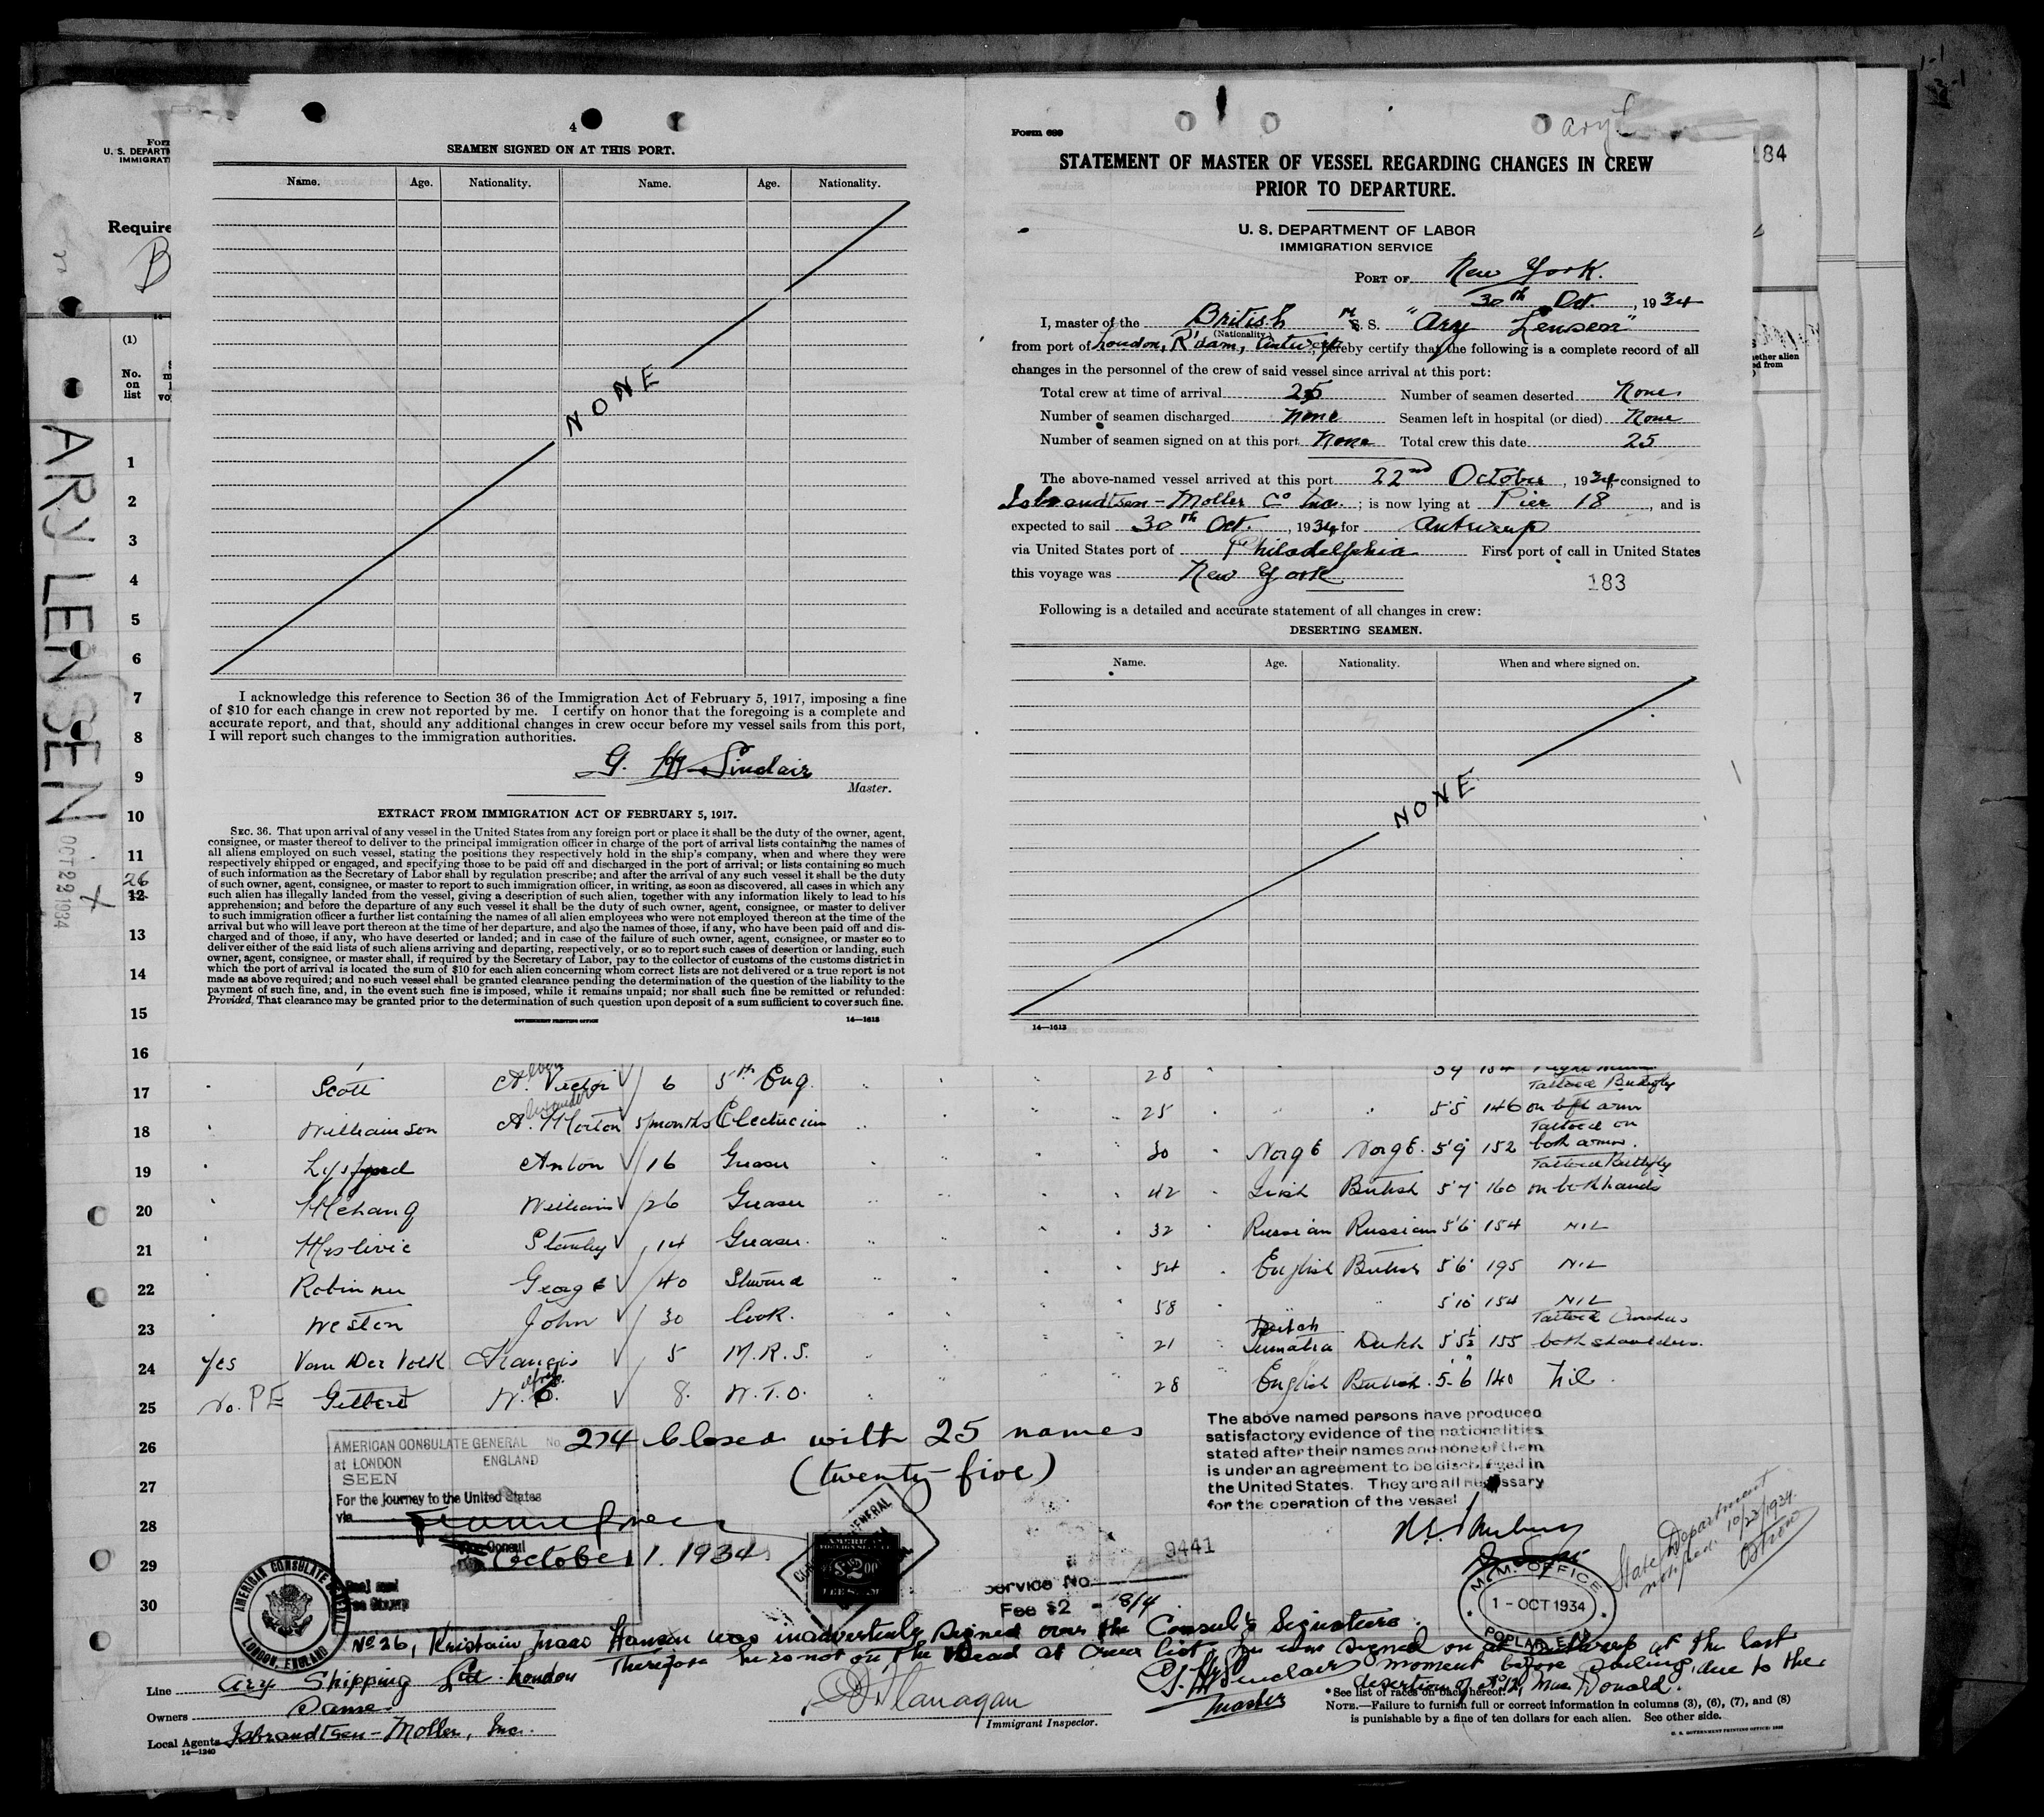 4
SEAMEN SIGNED ON AT THIS PORT.
Name. Age. Nationality. Name. Age. Nationality.
NONE
I acknowledge this reference to Section 36 of the Immigration Act of February 5, 1917, imposing a fine
of $10 for each change in crew not reported by me. I certify on honor that the foregoing is a complete and
accurate report, and that, should any additional changes in crew occur before my vessel sails from this port,
I will report such changes to the immigration authorities.
Sinclair
Master.
EXTRACT FROM IMMIGRATION ACT OF FEBRUARY 5, 1917.
SEC. 36. That upon arrival of any vessel in the United States from any foreign port or place it shall be the duty of the owner, agent,
consignee, or master thereof to deliver to the principal immigration officer in charge of the port of arrival lists containing the names of
all aliens employed on such vessel, stating the positions they respectively hold in the ship's company, when and where they were
respectively shipped or engaged, and specifying those to be paid off and discharged in the port of arrival; or lists containing so much
of such information as the Secretary of Labor shall by regulation prescribe; and after the arrival of any such vessel it shall be the duty
of such owner, agent, consignee, or master to report to such immigration officer, in writing, as soon as discovered, all cases in which any
such alien has illegally landed from the vessel, giving a description of such alien, together with any information likely to lead to his
apprehension; and before the departure of any such vessel it shall be the duty of such owner, agent, consignee, or master to deliver
to such immigration officer a further list containing the names of all alien employees who were not employed thereon at the time of the
arrival but who will leave port thereon at the time of her departure, and also the names of those, if any, who have been paid off and dis-
charged and of those, if any, who have deserted or landed; and in case of the failure of such owner, agent, consignee, or master so to
deliver either of the said lists of such aliens arriving and departing, respectively, or so to report such cases of desertion or landing, such
owner, agent, consignee, or master shall, if required by the Secretary of Labor, pay to the collector of customs of the customs district in
which the port of arrival is located the sum of $10 for each alien concerning whom correct lists are not delivered or a true report is not
made as above required; and no such vessel shall be granted clearance pending the determination of the question of the liability to the
payment of such fine, and, in the event such fine is imposed, while it remains unpaid; nor shall such fine be remitted or refunded:
Provided, That clearance may be granted prior to the determination of such question upon deposit of a sum sufficient to cover such fine.
GOVERNMENT PRINTING OFFICE 14—1613
Form 689
STATEMENT OF MASTER OF VESSEL REGARDING CHANGES IN CREW
PRIOR TO DEPARTURE.
U. S. DEPARTMENT OF LABOR
IMMIGRATION SERVICE
PORT OF New York.
30th Oct., 1934
I, master of the British S. S. "Ary Lensen"
(Nationality.)
from port of London, R'dam, Antwerp, hereby certify that the following is a complete record of all
changes in the personnel of the crew of said vessel since arrival at this port:
Total crew at time of arrival 25 Number of seamen deserted None
Number of seamen discharged None Seamen left in hospital (or died) None
Number of seamen signed on at this port None Total crew this date 25
The above-named vessel arrived at this port 22nd October, 1934, consigned to
Isbrandtsen-Moller Co Inc.; is now lying at Pier 18, and is
expected to sail 30th Oct., 1934, for Antwerp
via United States port of Philadelphia First port of call in United States
this voyage was New York
183
Following is a detailed and accurate statement of all changes in crew:
DESERTING SEAMEN.
Name. Age. Nationality. When and where signed on.
NONE
14—1613
184
U. S. DEPART
IMMIGRAT
Require
(1)
No.
on
list
ARY LENSEN
OCT 22 1934
1
2
3
4
5
6
7
8
9
10
11
26
12
13
14
15
16
17 Scott A. Victor 6 5th Eng. 28
18 Williamson A. Morton 5/months Electrician 25 5'5 146 on left arm
19 Anton 16 Greaser 30 Norge Norge. 5'9 152 Tattoed on both arms.
20 William 26 Greaser 42 Irish British 5'7 160 Tattoed Butterfly on both hands
21 Stanley 14 Greaser. 32 Russian Russian 5'6 154 NIL
22 George 40 Steward 54 English British 5'6 195 NIL
23 Weston John 30 Cook. 58 5'10 154 NIL
24 Yes Van Der Volk Francis 5 M.R.S. 21 Dutch Sumatra Dutch 5'5½ 155 Tattoed both shoulders.
25 No. PE Gilbert W. 8. W.T.O. 28 English British. 5-6 140 Nil.
26
27
28
29
30
AMERICAN CONSULATE GENERAL No. 274 Closed with 25 names
at LONDON ENGLAND
(twenty-five)
SEEN
For the journey to the United States
via
Vice Consul
October 1. 1934
Seal and
Fee Stamp
AMERICAN CONSULATE GENERAL
LONDON, ENGLAND
$2.00
9441
Service No.
Fee $2 - 8/4
The above named persons have produced
satisfactory evidence of the nationalities
stated after their names and none of them
is under an agreement to be discharged in
the United States. They are all necessary
for the operation of the vessel
M.M. OFFICE
1 - OCT 1934
POPLAR, E.
State Department
notified. 10/22/1934.
No 26, Kristain Hansen was inadvertently signed over the Consul's Signature.
Therefore he is not on the Head at Crew list. He was signed on at Antwerp at the last
moment before sailing, due to the
desertion of No 12, Mac Donald.
Sinclair
Master
Flanagan
Immigrant Inspector.
Line Ary Shipping Ltd London
Owners Same.
Local Agents Isbrandtsen-Moller, Inc.
14—1240
* See list of races on back hereof.
NOTE.—Failure to furnish full or correct information in columns (3), (6), (7), and (8)
is punishable by a fine of ten dollars for each alien. See other side.
U. S. GOVERNMENT PRINTING OFFICE